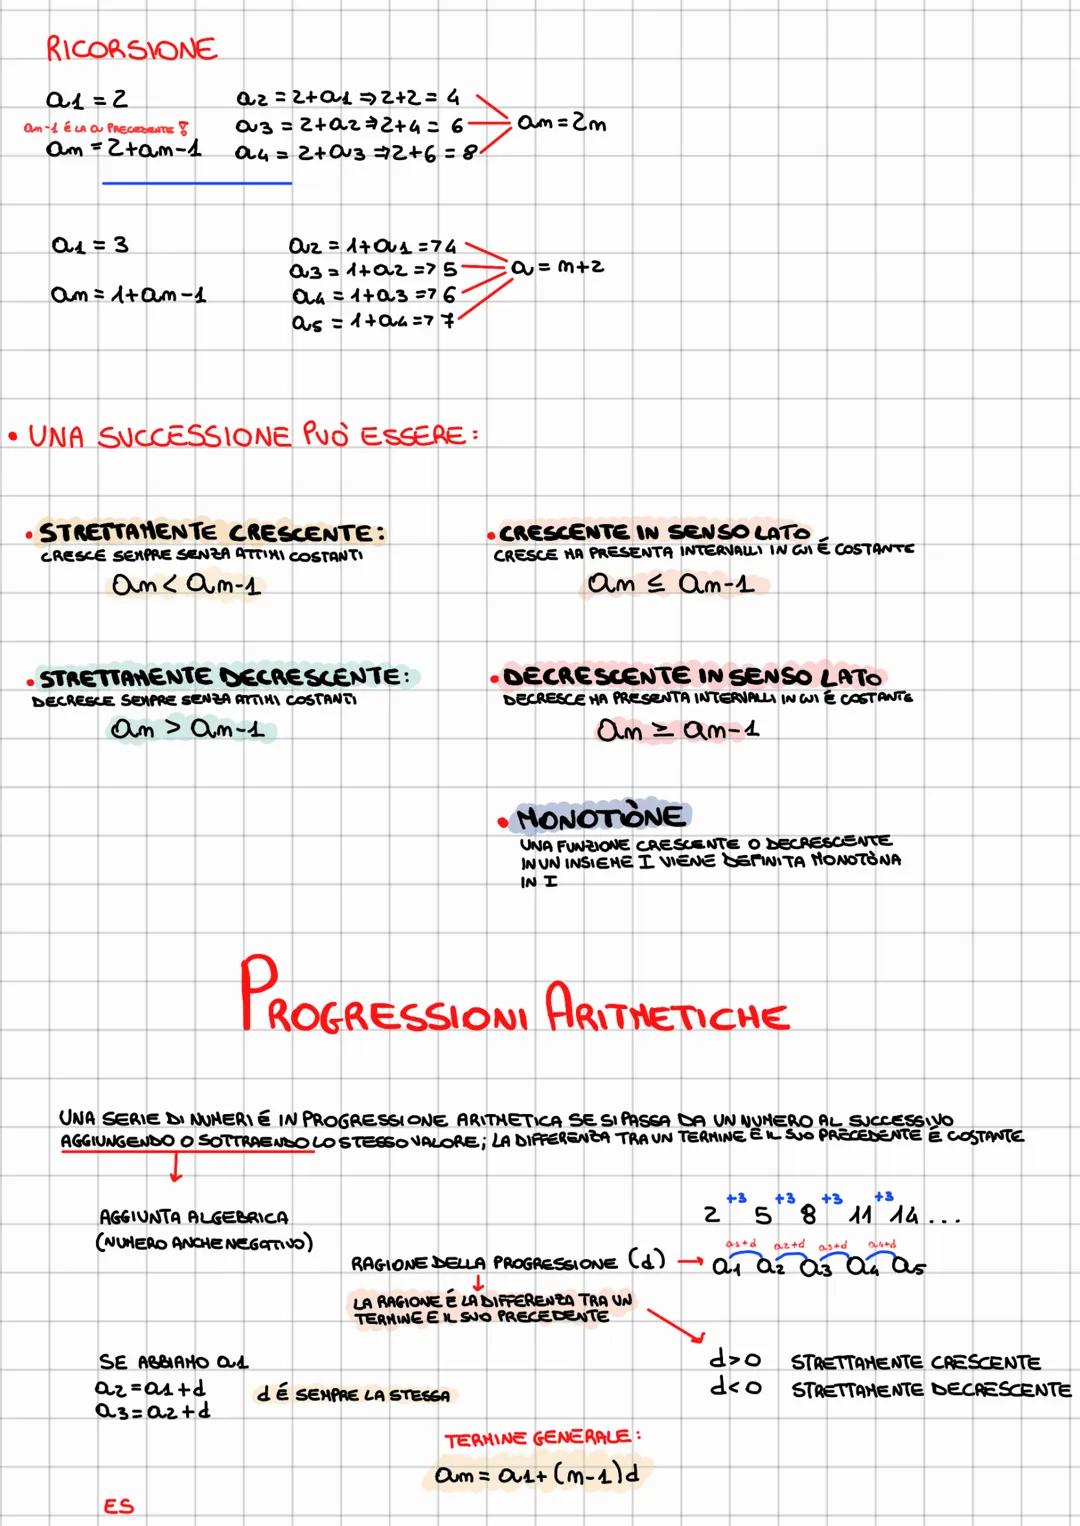 RICORSIONE
a1 = 2
a2 = 2+a1 ⇒ 2+2 = 4
am-1 é LA a PRECEDENTE !
a3 = 2+a2 ⇒ 2+4 = 6
am = 2m
am = 2+am-1
a4 = 2+a3 ⇒ 2+6 = 8
a1 = 3
a2 = 1+a1 => 4
a3 = 1+a2 => 5
a = m+2
am = 1+am-1
a4 = 1+a3 => 6
a5 = 1+a4 => 7
• UNA SUCCESSIONE PUÒ ESSERE:
• STRETTAMENTE CRESCENTE:
CRESCE SEMPRE SENZA ATTIMI COSTANTI
am < am-1
• CRESCENTE IN SENSO LATO
CRESCE MA PRESENTA INTERVALLI IN CUI É COSTANTE
am ≤ am-1
• STRETTAMENTE DECRESCENTE:
DECRESCE SEMPRE SENZA ATTIMI COSTANTI
am > am-1
• DECRESCENTE IN SENSO LATO
DECRESCE MA PRESENTA INTERVALLI IN CUI É COSTANTE
am ≥ am-1
• MONOTÒNE
UNA FUNZIONE CRESCENTE O DECRESCENTE
IN UN INSIEME I VIENE DEFINITA MONOTÒNA
IN I
PROGRESSIONI ARITMETICHE
UNA SERIE DI NUMERI É IN PROGRESSIONE ARITMETICA SE SI PASSA DA UN NUMERO AL SUCCESSIVO
AGGIUNGENDO O SOTTRAENDO LO STESSO VALORE; LA DIFFERENZA TRA UN TERMINE E IL SUO PRECEDENTE É COSTANTE
AGGIUNTA ALGEBRICA
(NUMERO ANCHE NEGATIVO)
+3 +3 +3 +3
2 5 8 11 14 ...
a1+d a2+d a3+d a4+d
RAGIONE DELLA PROGRESSIONE (d) → a1 a2 a3 a4 a5
LA RAGIONE É LA DIFFERENZA TRA UN
TERMINE E IL SUO PRECEDENTE
d>0 STRETTAMENTE CRESCENTE
d<0 STRETTAMENTE DECRESCENTE
SE ABBIAMO a1
a2=a1+d
a3=a2+d
d É SEMPRE LA STESSA
TERMINE GENERALE:
am = a1+(m-1)d
ES